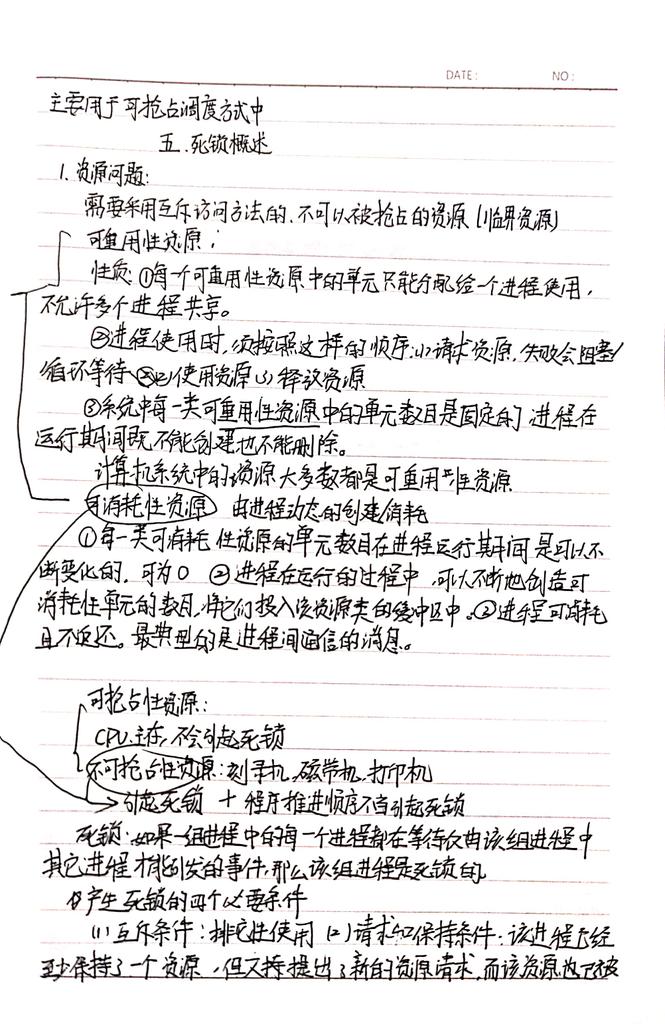 DATE: NO:
主要用于可抢占调度方式中
五.死锁概述
1.资源问题:
需要采用互斥访问方法的、不可以被抢占的资源(临界资源)
可重用性资源:
性质:①每一个可重用性资源中的单元只能分配给一个进程使用,
不允许多个进程共享。
②进程使用时,须按照这样的顺序:(1)请求资源,失败会阻塞/
循环等待 (2)使用资源 (3)释放资源
③系统中每一类可重用性资源中的单元数目是固定的 进程在
运行期间既不能创建也不能删除。
计算机系统中的资源大多数都是可重用性资源
可消耗性资源 由进程动态的创建消耗
①每一类可消耗性资源的单元数目在进程运行期间是可以不
断变化的,可为0 ②进程在运行的过程中,可以不断地创造可
消耗性单元的数目,将它们投入该资源类的缓冲区中.③进程可消耗
且不返还。最典型的是进程间通信的消息。
可抢占性资源:
CPU.主存,不会引起死锁
不可抢占性资源:刻录机,磁带机,打印机
引起死锁 + 程序推进顺序不当引起死锁
死锁:如果一组进程中的每一个进程都在等待仅由该组进程中
其它进程才能引发的事件,那么该组进程是死锁的
产生死锁的四个必要条件
(1)互斥条件:排它性使用 (2)请求和保持条件:该进程已经
至少保持了一个资源,但又提出了新的资源请求,而该资源也已被